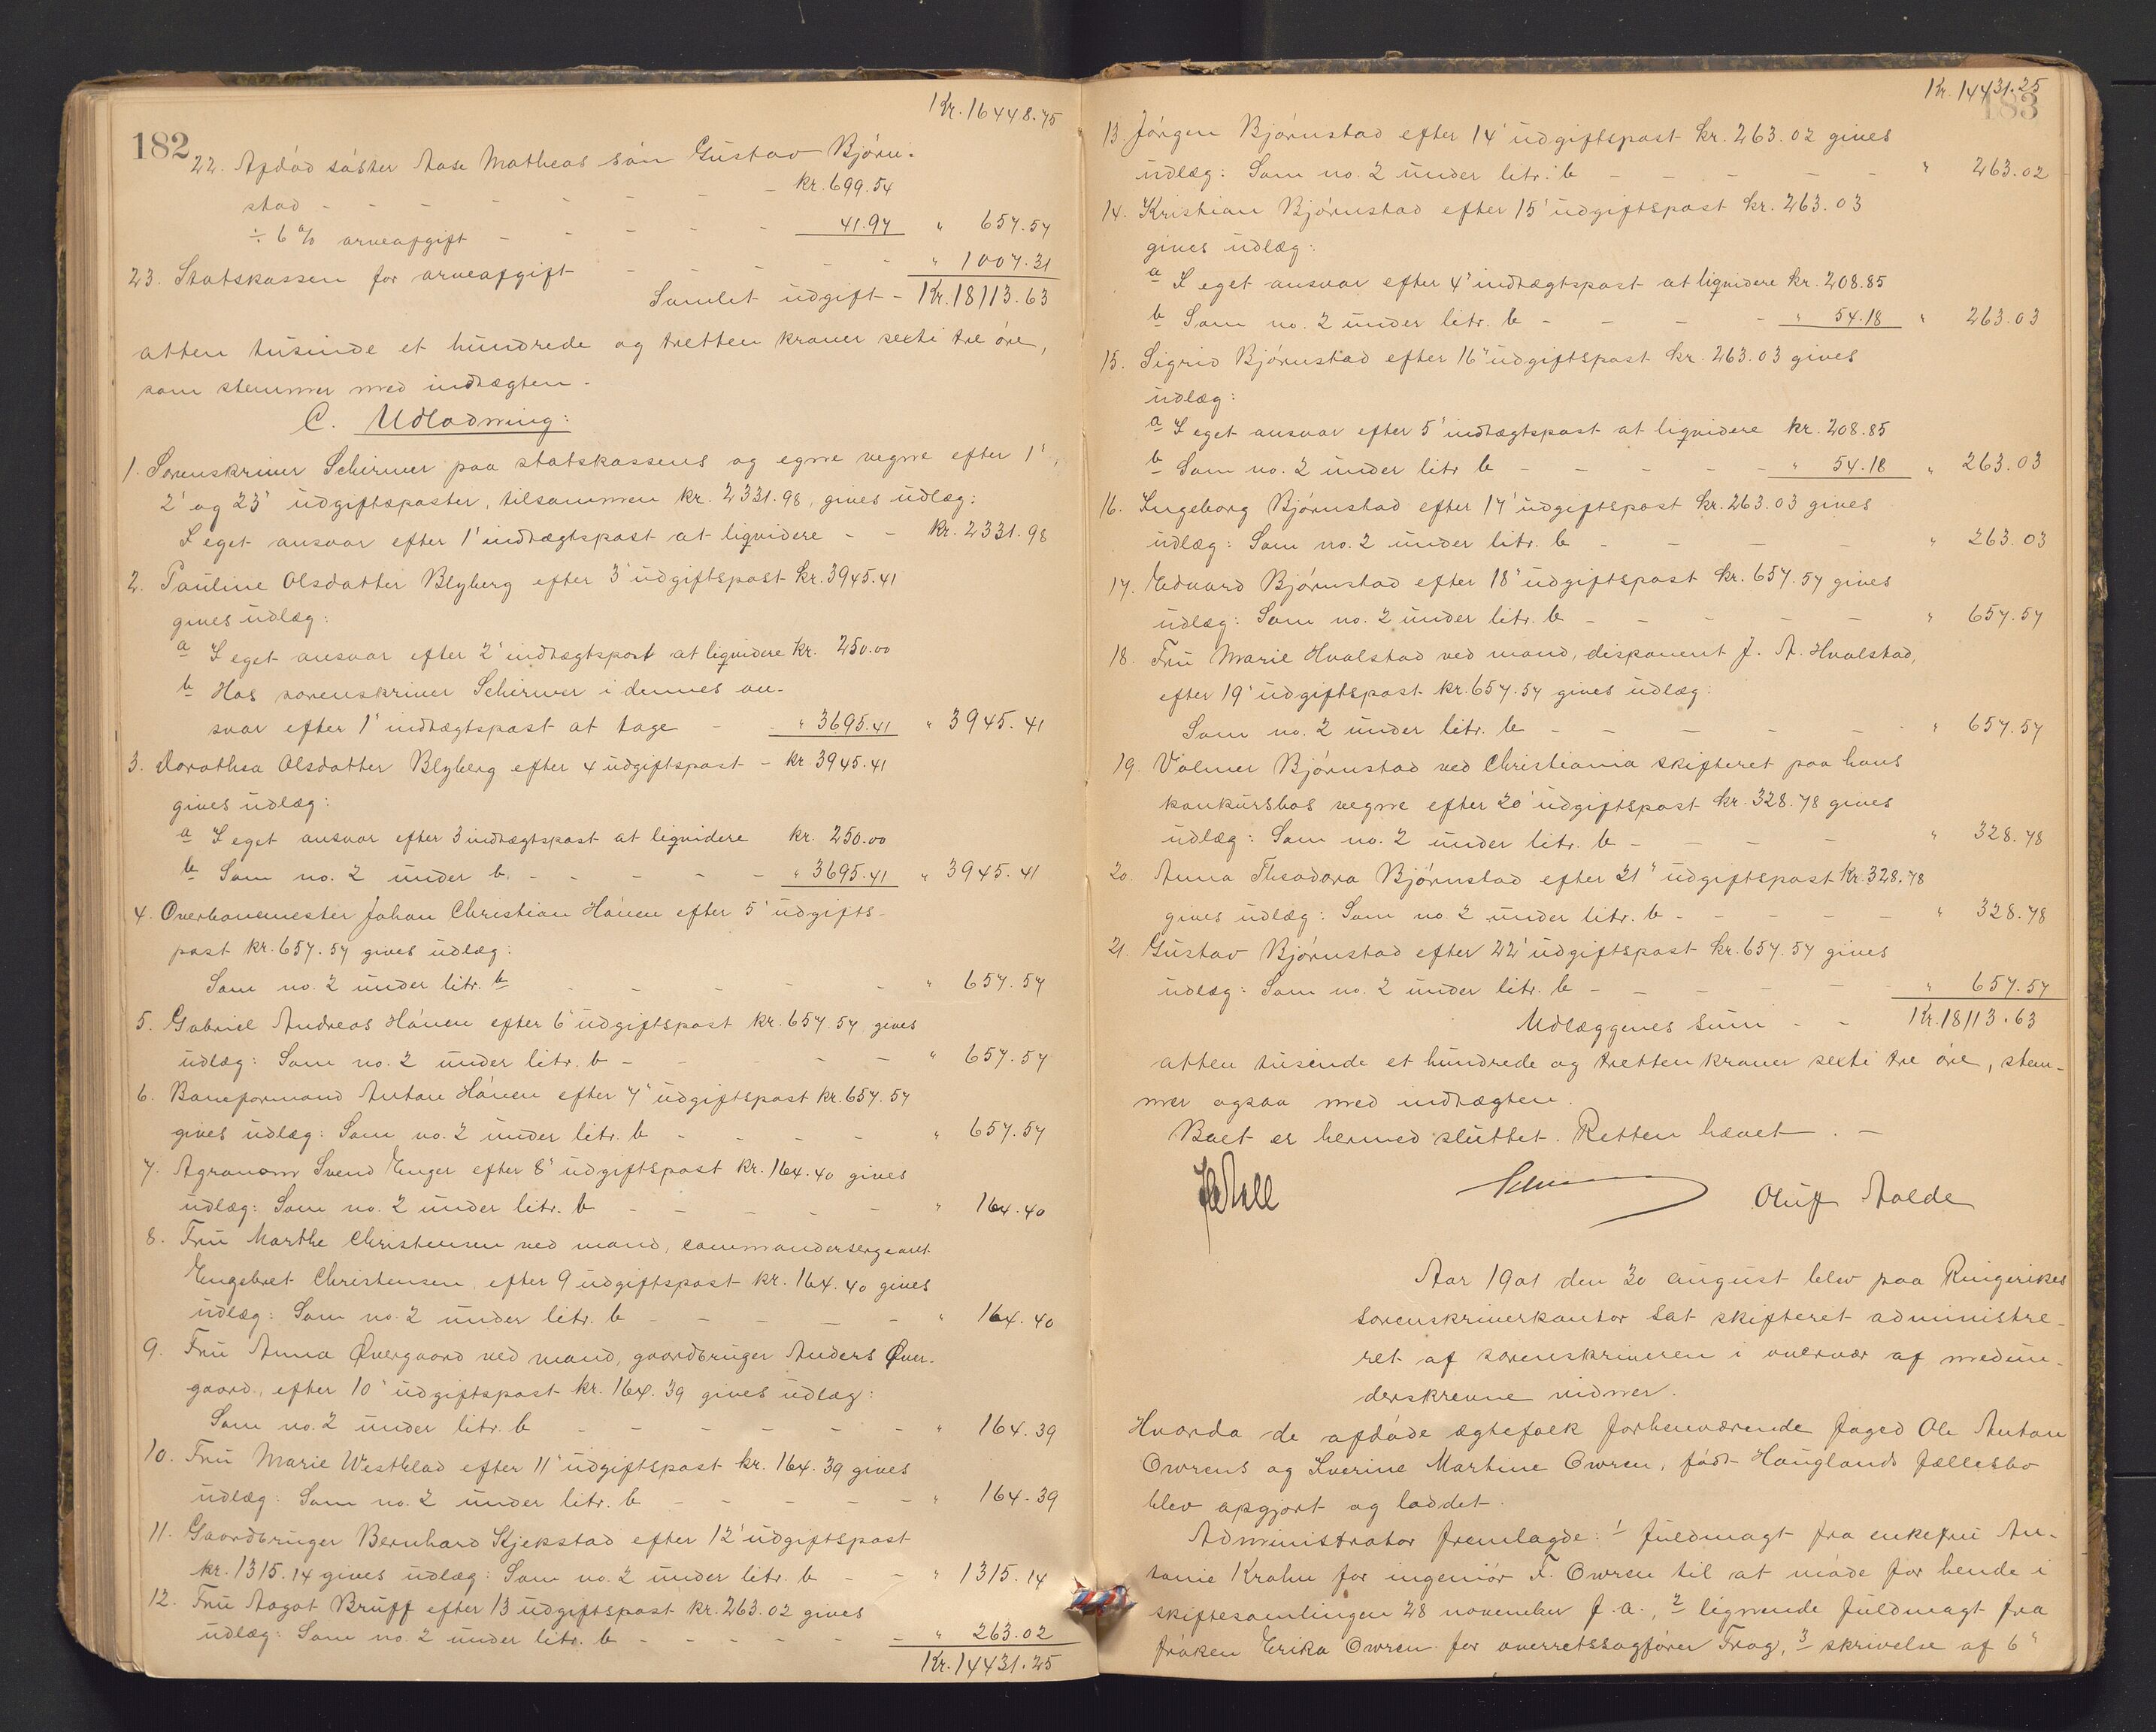 Kr. 16448.75
182
22. Afdöd söster Aase Matheas sön Gustav Björn-
stad - - - - - - - kr. 699.54
÷ 6 % arveafgift - - - - - 41.97 " 657.57
23. Statskassen for arveafgift - - - - - " 1007.31
Samlet udgift - Kr. 18113.63
atten tusinde et hundrede og tretten kroner sexti tre öre,
som stemmer med indtægten.
C. Udlodning:
1. Sorenskriver Schirmer paa statskassens og egne vegne efter 1',
2' og 23' udgiftsposter, tilsammen kr. 2331.98, gives udlæg:
I eget ansvar efter 1' indtægtspost at liqvidere - - Kr. 2331.98
2. Pauline Olsdatter Blyberg efter 3' udgiftspost kr. 3945.41
gives udlæg:
a I eget ansvar efter 2' indtægtspost at liqvidere kr. 250.00
b Hos sorenskriver Schirmer i dennes an-
svar efter 1' indtægtspost at tage - " 3695.41 " 3945.41
3. Dorothea Olsdatter Blyberg efter 4 udgiftspost - kr 3945.41
gives udlæg:
a I eget ansvar efter 3 indtægtspost at liqvidere kr. 250.00
b Som no. 2 under b. - - - - - " 3695.41 " 3945.41
4. Overbanemester Johan Christian Hönen efter 5' udgifts-
post kr. 657.57 gives udlæg:
Som no. 2 under litr. b - - - - - " 657.57
5. Gabriel Andreas Hönen efter 6' udgiftspost kr. 657.57 gives
udlæg: Som no. 2 under litr. b - - - - " 657.57
6. Baneformand Anton Hönen efter 7' udgiftspost kr. 657.57
gives udlæg: Som no. 2 under litr. b - - - - " 657.57
7. Agronom Svend Enger efter 8' udgiftspost kr. 164.40 gives
udlæg: Som no. 2 under litr. b - - - - - " 164.40
8. Fru Marthe Christensen ved mand, commandersergeant
Engebret Christensen efter 9 udgiftspost kr. 164.40 gives
udlæg: Som no. 2 under litr. b - - - - - " 164.40
9. Fru Anna Øvergaard ved mand, gaardbruger Anders Øver-
gaard, efter 10' udgiftspost kr. 164.39 gives udlæg:
Som no. 2 under litr. b - - - - - - " 164.39
10. Fru Marie Westblad efter 11' udgiftspost kr. 164.39 gives
udlæg: Som no. 2 under litr. b - - - - - " 164.39
11. Gaardbruger Bernhard Kjekstad efter 12' udgiftspost
kr. 1315.14 gives udlæg: Som no. 2 under litr. b - - " 1315.14
12. Fru Aagot Bruff efter 13 udgiftspost kr. 263.02 gives
udlæg: Som no. 2 under litr. b - - - - - - " 263.02
Kr. 14431.25
Kr. 14431.25
183
13. Jörgen Björnstad efter 14' udgiftspost kr. 263.02 gives
udlæg: Som no. 2 under litr. b - - - - - " 263.02
14. Kristian Björnstad efter 15' udgiftspost kr. 263.03
gives udlæg:
a I eget ansvar efter 4' indtægtspost at liqvidere kr. 208.85
b Som no. 2 under litr. b - - - - " 54.18 " 263.03
15. Sigrid Björnstad efter 16" udgiftspost kr. 263.03 gives
udlæg:
a I eget ansvar efter 5' indtægtspost at liqvidere kr. 208.85
b Som no. 2 under litr b - - - - - " 54.18 " 263.03
16. Ingeborg Björnstad efter 17' udgiftspost kr. 263.03 gives
udlæg: Som no. 2 under litr. b - - - - " 263.03
17. Edvard Björnstad efter 18' udgiftspost kr. 657.57 gives
udlæg: Som no. 2 under litr. b - - - - - " 657.57
18. Fru Marie Hvalstad ved mand, disponent J. A. Hvalstad,
efter 19' udgiftspost kr. 657.57 gives udlæg:
Som no. 2 under litr. b - - - - - - " 657.57
19. Volmer Björnstad ved Christiania skifteret paa hans
konkursbos vegne efter 20' udgiftspost kr. 328.78 gives
udlæg: Som no. 2 under litr. b - - - - " 328.78
20. Anna Theodora Björnstad efter 21" udgiftspost kr. 328.78
gives udlæg: Som no. 2 under litr. b - - - - - " 328.78
21. Gustav Björnstad efter 22' udgiftspost kr. 657.57 gives
udlæg: Som no. 2 under litr. b - - - - - - " 657.57
Udlæggenes sum - - Kr. 18113.63
atten tusinde et hundrede og tretten kroner sexti tre öre, stem-
mer ogsaa med indtægten.
Boet er hermed sluttet. Retten hævet. -
Oluf Aalde
Aar 1901 den 20 august blev paa Ringerikes
sorenskriverkontor sat skifteret administre-
ret af sorenskriveren i overvær af medun-
derskrevne vidner.
Hvorda de afdöde ægtefolk forhenværende foged Ole Anton
Owrens og Severine Martine Owren, födt Hauglands fællesbo
blev opgjort og loddet.
Administrator fremlagde: 1 fuldmagt fra enkefru An-
tonie Krohn for ingeniör F. Owren til at möde for hende i
skiftesamlingen 28 november f. a., 2 lignende fuldmagt fra
fröken Erika Owren for overretssagförer Frog, 3 skrivelse af 6"